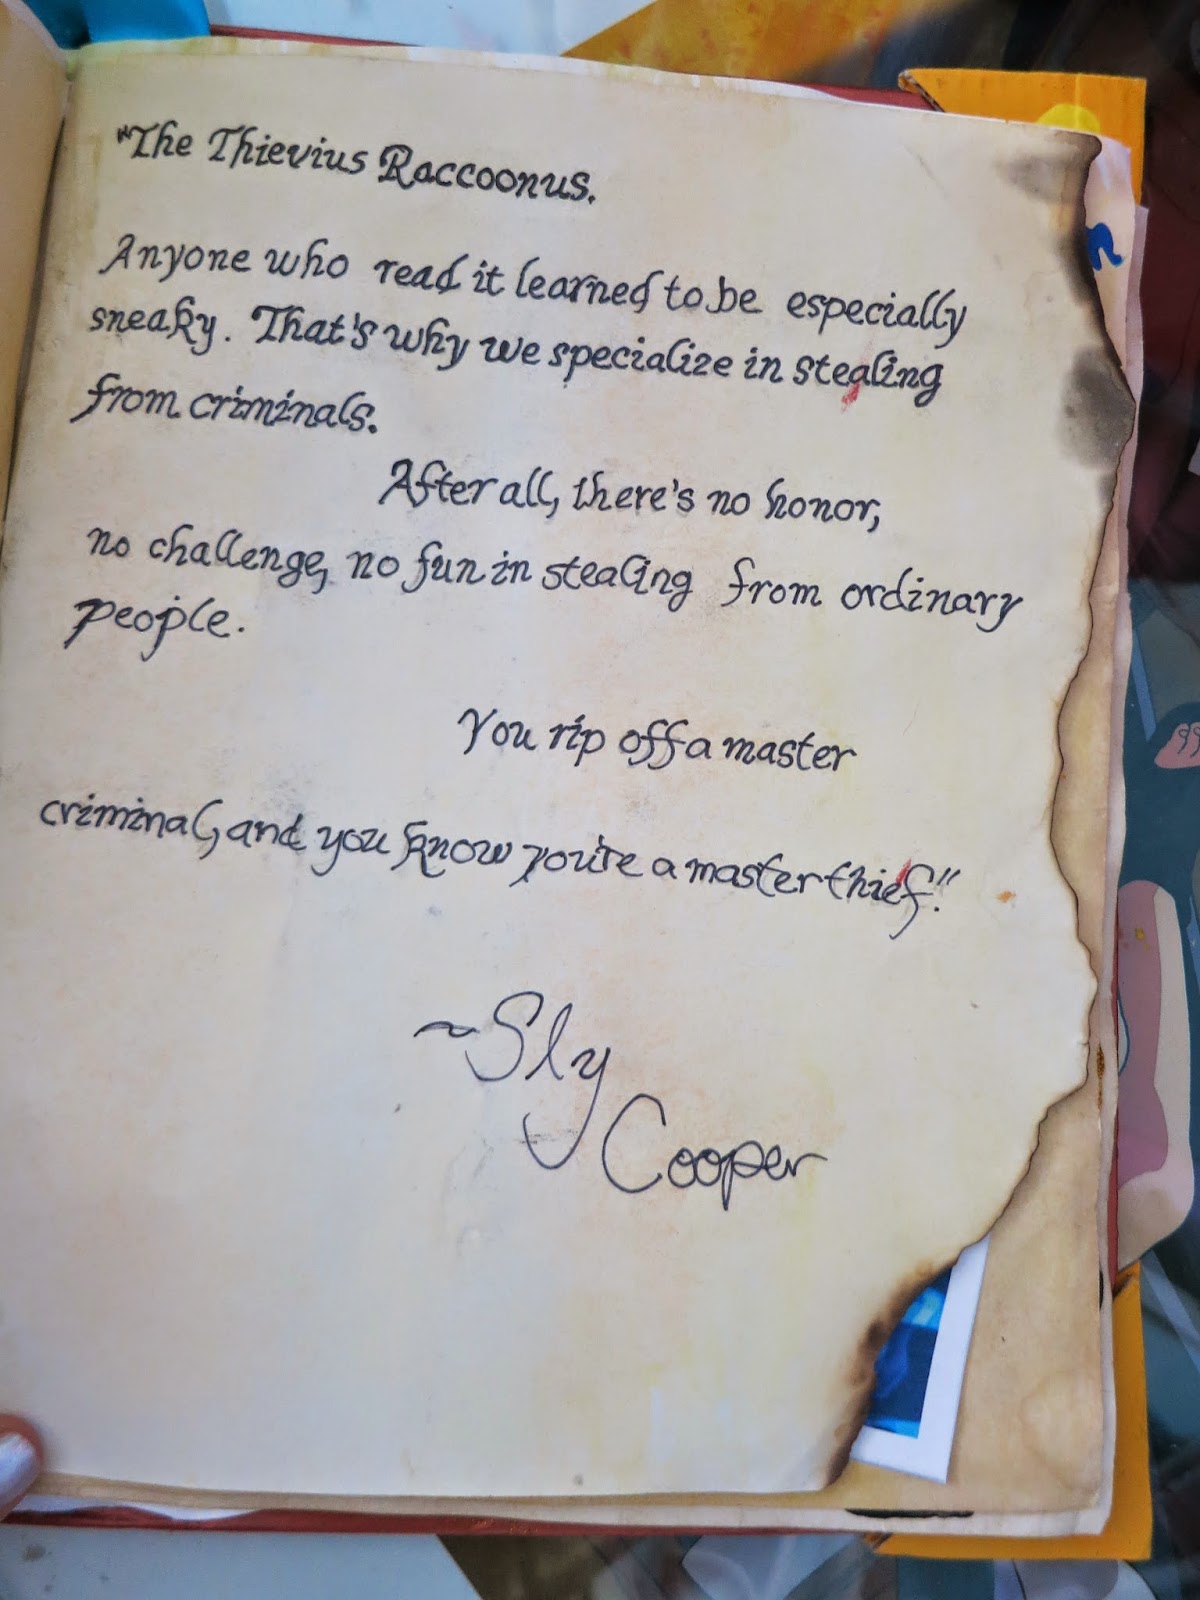 "The Thievius Raccoonus.
Anyone who read it learned to be especially
sneaky. That's why we specialize in stealing
from criminals.
After all, there's no honor,
no challenge, no fun in stealing from ordinary
people.
You rip off a master
criminal, and you know you're a master thief."
~Sly
Cooper